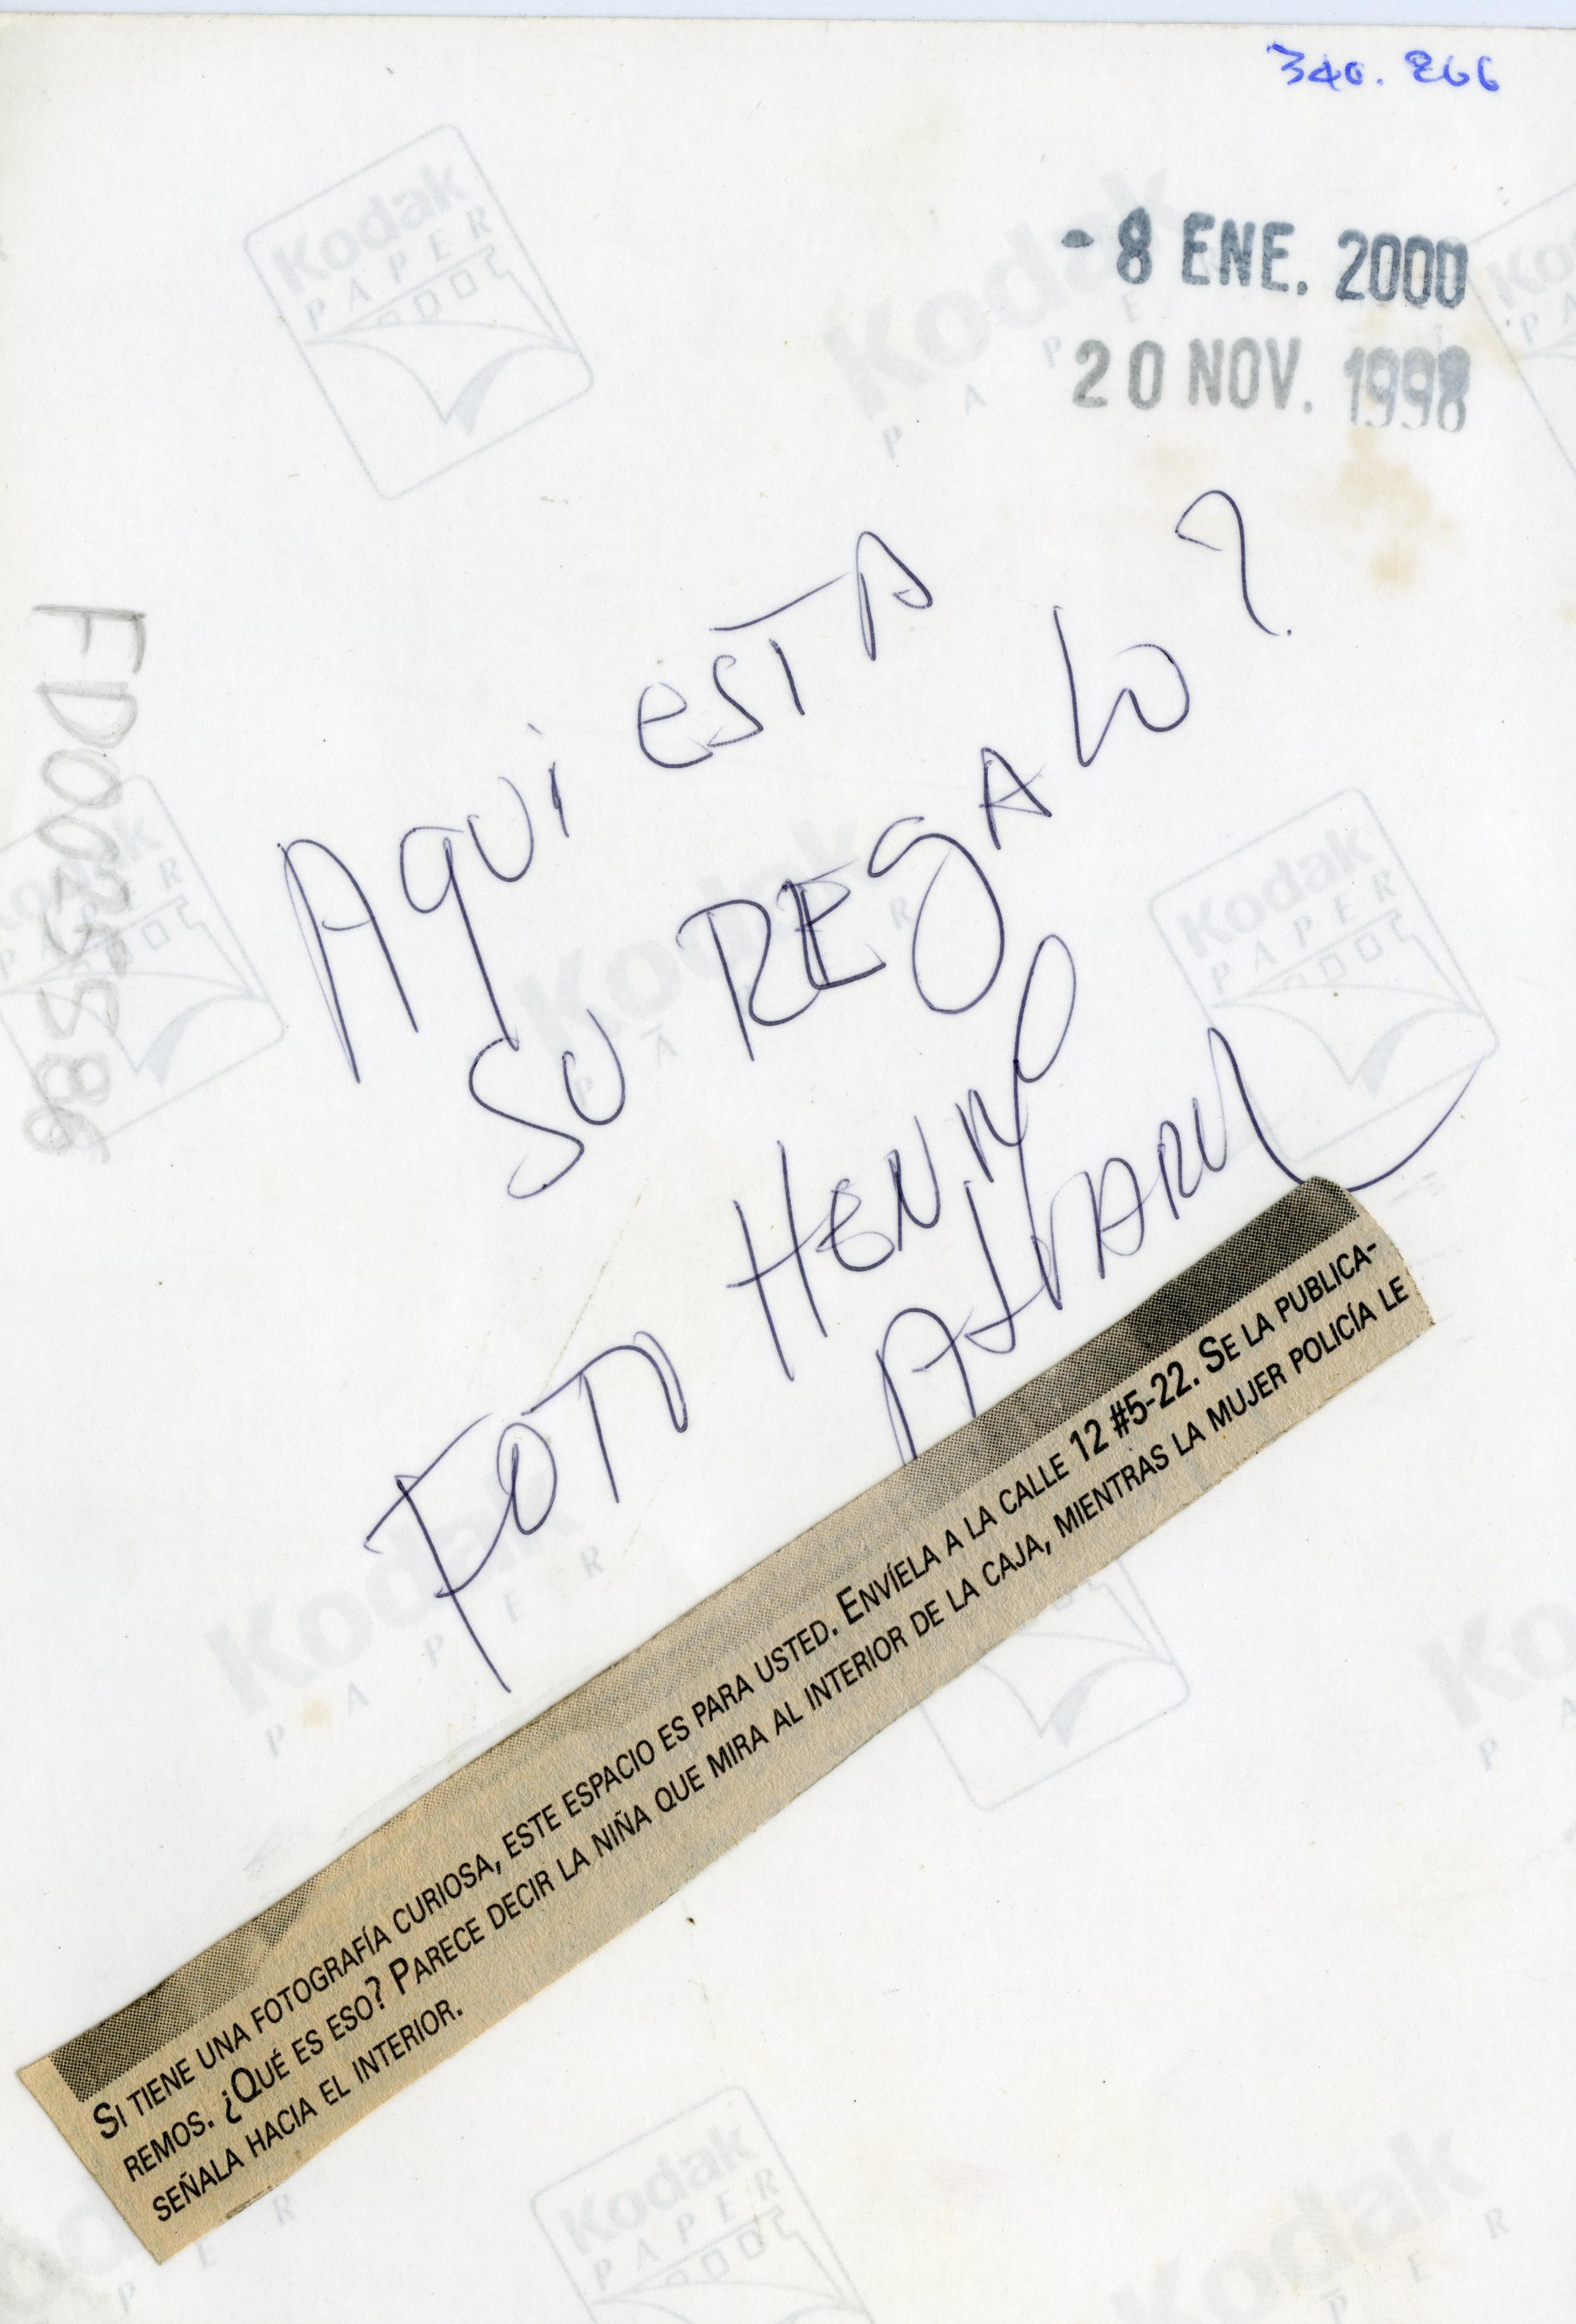 340.266
- 8 ENE. 2000
20 NOV. 1998
AQUI ESTA
SU REGALO?
FOTO HENRY
FD003586
SI TIENE UNA FOTOGRAFÍA CURIOSA, ESTE ESPACIO ES PARA USTED. ENVÍELA A LA CALLE 12 #5-22. SE LA PUBLICA-
REMOS. ¿QUÉ ES ESO? PARECE DECIR LA NIÑA QUE MIRA AL INTERIOR DE LA CAJA, MIENTRAS LA MUJER POLICÍA LE
SEÑALA HACIA EL INTERIOR.
Kodak
PAPER